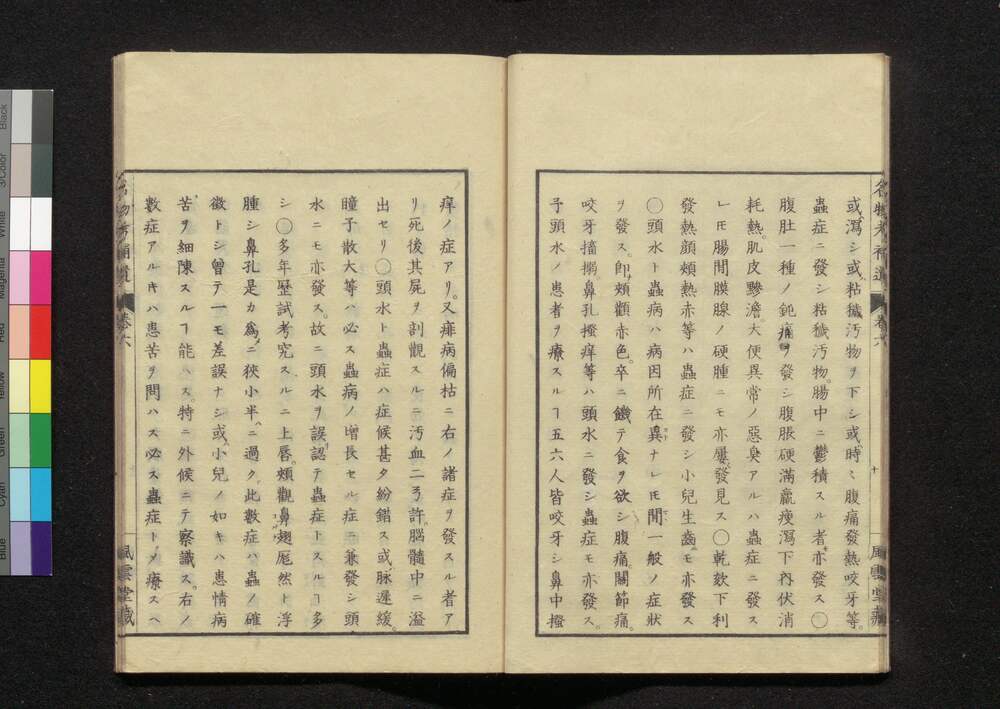 或ハ瀉シ或ハ粘穢汚物ヲ下シ或ハ時々腹痛發熱咬牙等。
蟲症ニ發シ粘穢汚物。腸中ニ鬱積スル者ハ亦發ス〇
腹肚一種ノ鈍痛ヲ發シ腹脹硬滿羸瘦瀉下内伏消
耗熱。肌皮黲澹。大便異常ノ惡臭アルハ蟲症ニ發ス
レ𪜈腸間膜腺ノ硬腫ニモ亦屢發見ス〇乾欬下利
發熱顔頰熱赤等ハ蟲症ニ發シ小兒生齒ニモ亦發ス
〇頭水ト蟲病ハ病因所在異ナレ𪜈間一般ノ症狀
ヲ發ス。卽チ頰顴赤色。卒ニ饑テ食ヲ欲シ腹痛。關節痛。
咬牙搐搦。鼻孔搔痒等ハ頭水ニ發シ蟲症モ亦發ス。
予頭水ノ患者ヲ療スルヿ五六人皆咬牙シ鼻中搔
名物考補遺
卷六
十
風雲堂藏
痒ノ症アリ。又癱病偏枯ニ右ノ諸症ヲ發スル者ア
リ死後其屍ヲ剖觀スルニ汚血二弓許。腦髓中ニ溢
出セリ〇頭水ト蟲症ハ症候甚タ紛錯ス或ハ脉遲緩。
瞳子散大等ハ必ス蟲病ノ增長セル症ニ兼發シ頭
水ニモ亦發ス。故ニ頭水ヲ誤認テ蟲症トスルヿ多
シ〇多年歷試考究スルニ上唇。頰顴鼻翅尨然ト浮
腫シ鼻孔是カ爲ニ狹小半ニ過ク。此數症ハ蟲ノ確
徵トシ曾テ一モ差誤ナシ或ハ小兒ノ如キハ患情病
苦ヲ細陳スルヿ能ハス。特ニ外候ニテ察識ス。右ノ
數症アル𪜈ハ患苦ヲ問ハス必ス蟲症ト〆療スヘ
名物考補遺
卷六
風雲堂藏
Black
3/Color
White
Magenta
Red
Yellow
Green
Cyan
Blue